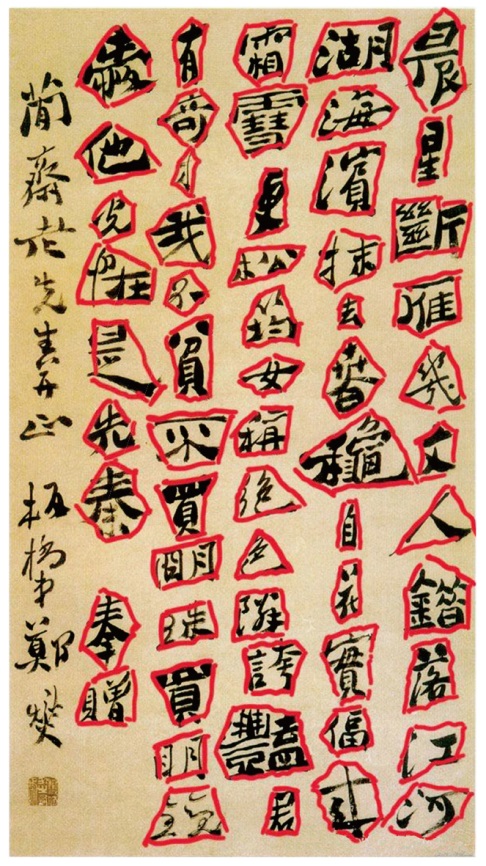 晨星斷雁幾文人錯落江河
湖海濱抹去春穐自花實偪来
霜雪更松筠女稱絕色隣誇豔君
有奇才我不貧不買明珠買明鏡
愛他光怪是先秦 奉贈
簡齋老先生正 板橋弟鄭燮